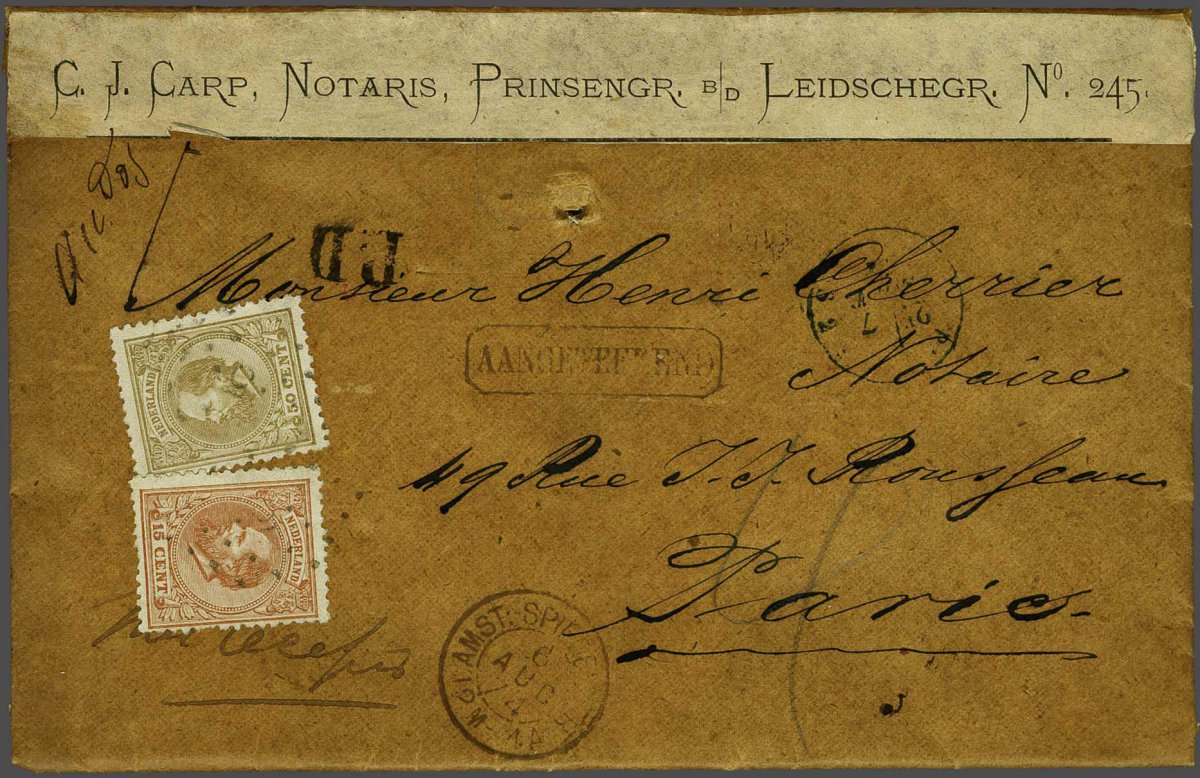 C. J. CARP, NOTARIS, PRINSENGR. B/D LEIDSCHEGR. Nº. 245.
P.D.
Monsieur Henri Cherrier
AANGETEEKEND
Notaire
49 Rue J. J. Rousseau
Paris
NEDERLAND
50 CENT
NEDERLAND
15 CENT
AMST: SPIE
AUG